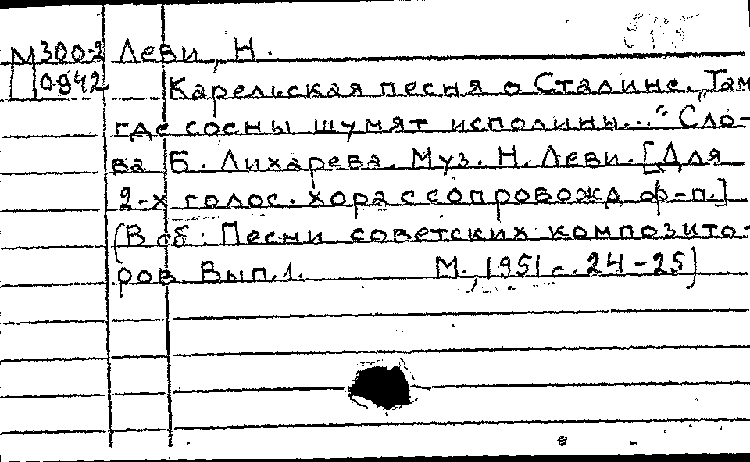 М300-2 Леви, Н.
0942 Карельская песня о Сталине. „Там
где сосны шумят исполины..." Сло-
ва Б. Лихарева. Муз. Н. Леви. [Для
2-х голос. хора с сопровожд ф-п.]
(В сб: Песни советских композито-
ров Вып. 1. М., 1951 с. 24-25)